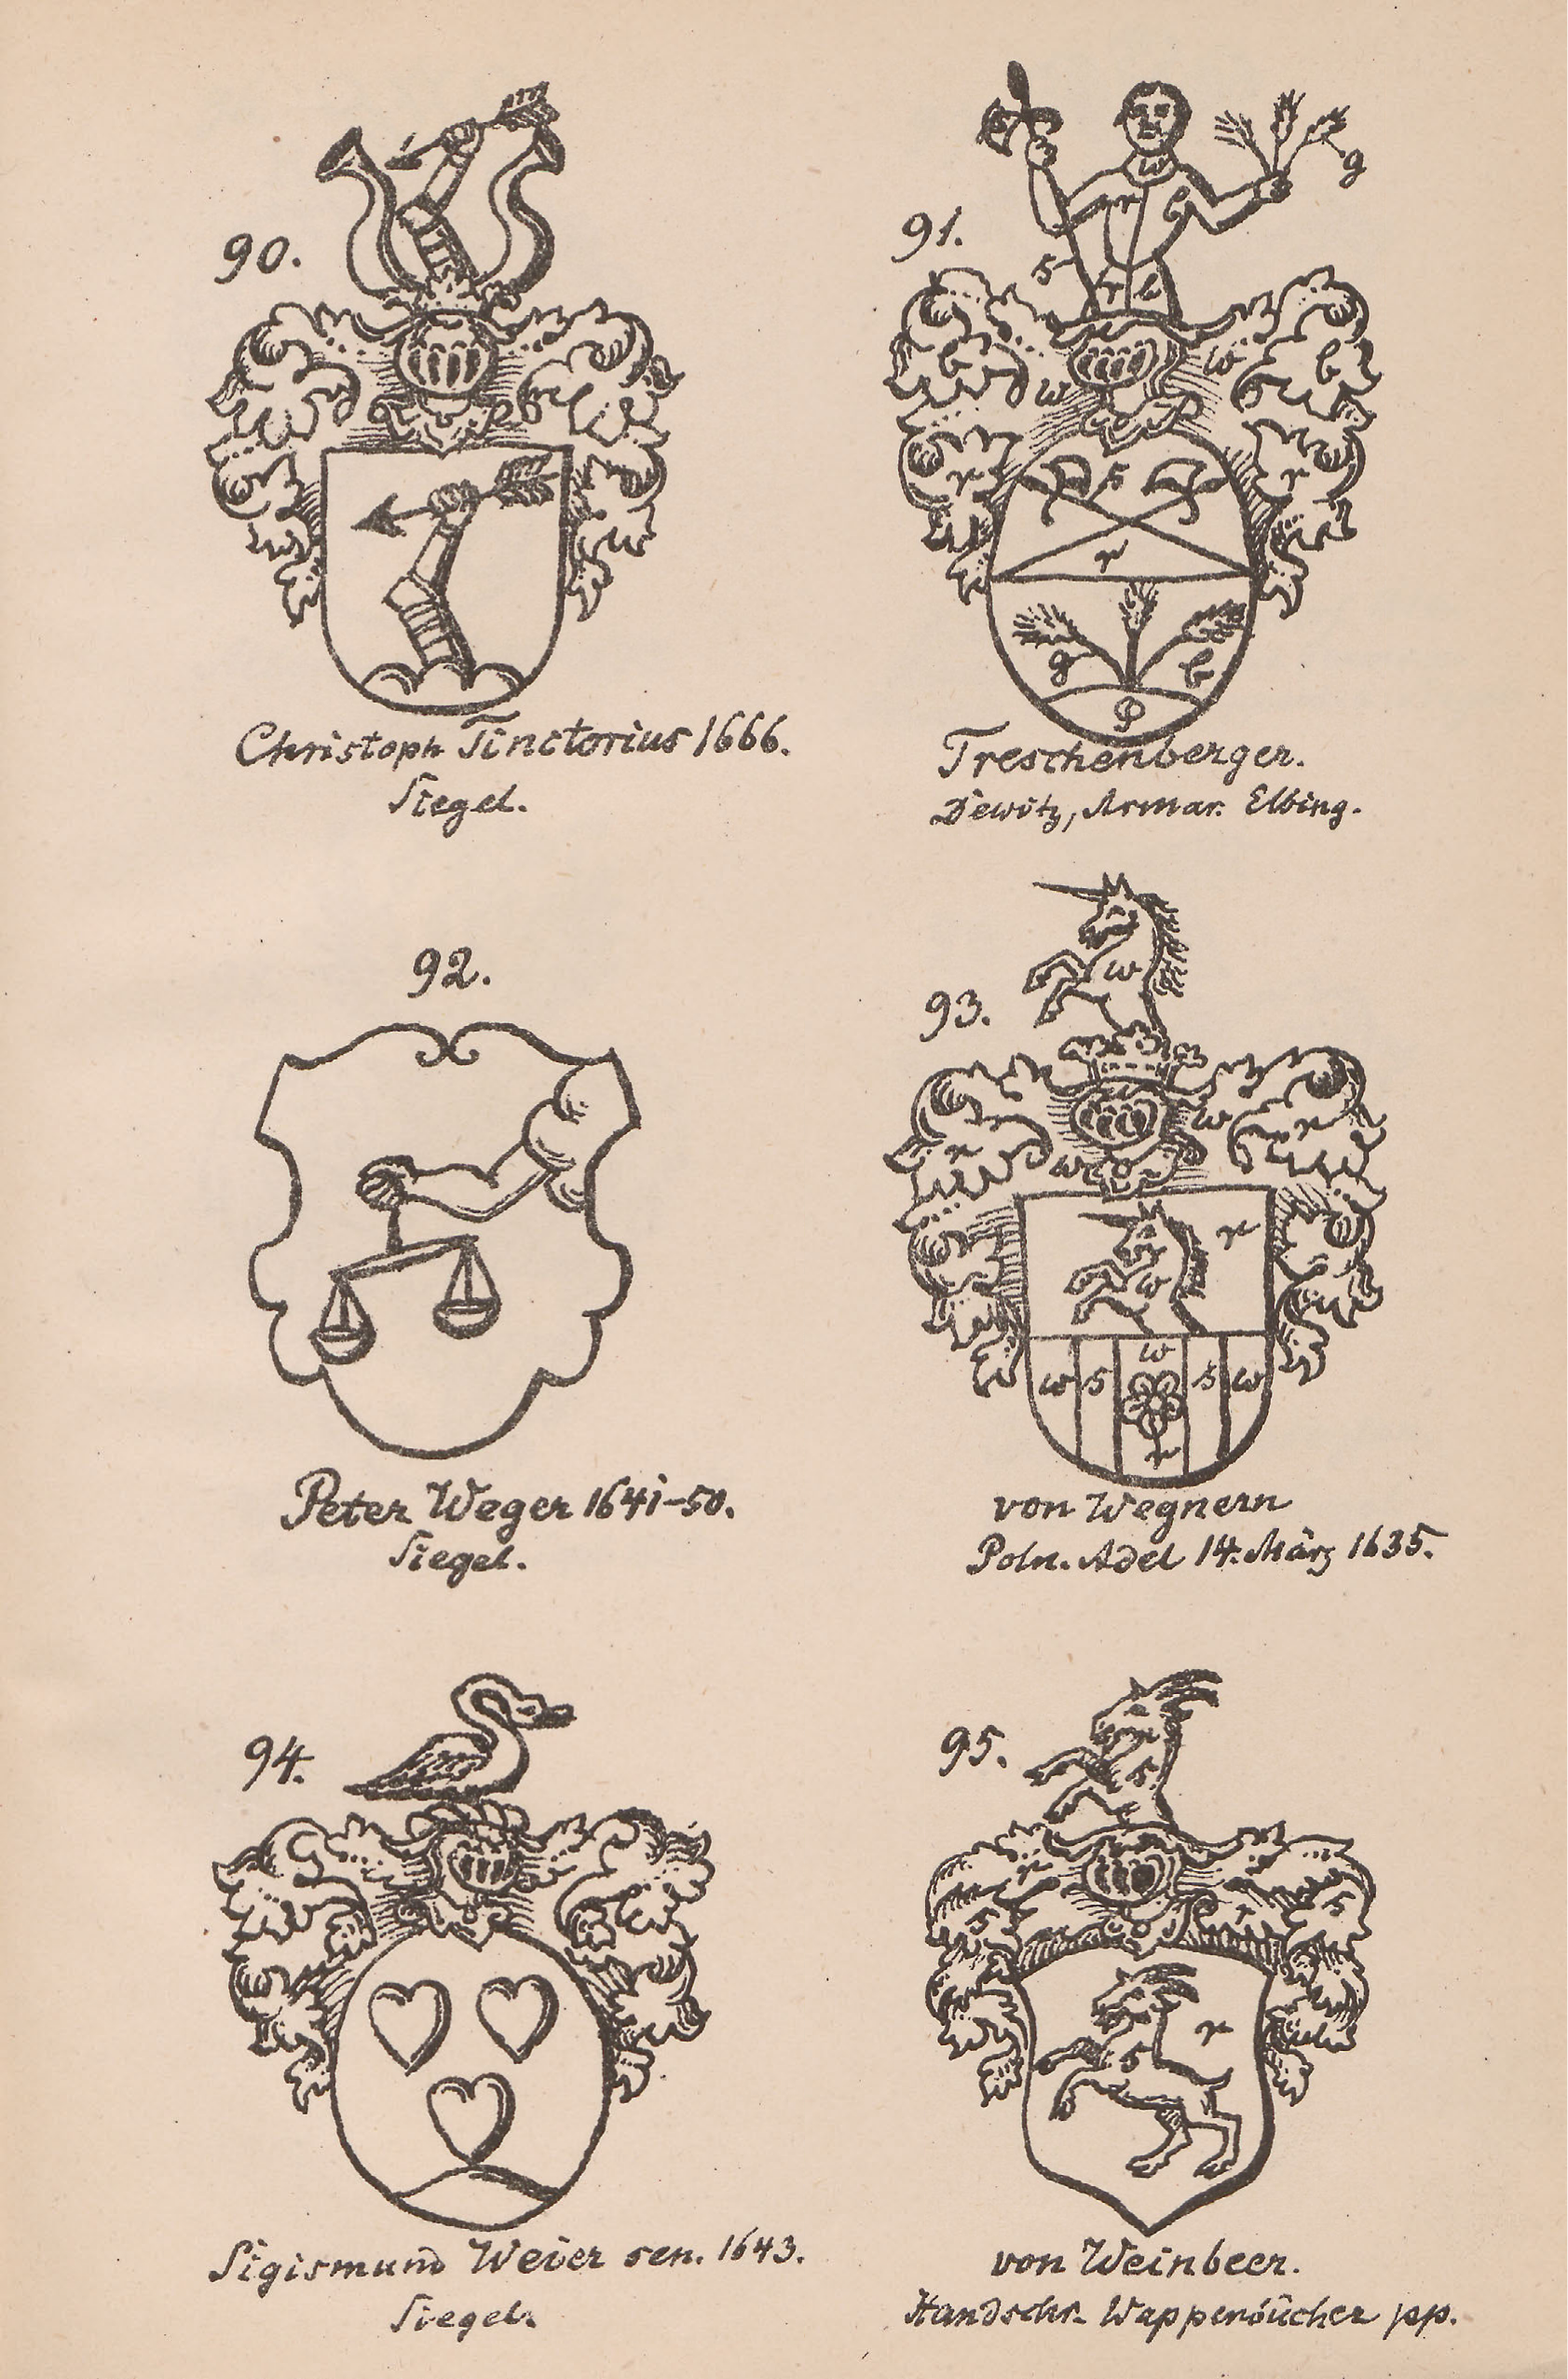 90.
Christoph Tinctorius 1666.
Siegel.
91.
w
g
r
b
s
r
b
b
w
w
b
r
s
r
r
g
b
P
Treschenberger.
Dewitz, Armar. Elbing.
92.
Peter Weger 1641-50.
Siegel.
93.
w
w
r
r
w
r
w
w
w
s
s
w
r
von Wegnern
Poln. Adel 14. März 1635.
94.
Sigismund Weier sen. 1643.
Siegel.
95.
s
r
s
r
s
r
s
von Weinbeer.
Handschr. Wappenbücher pp.